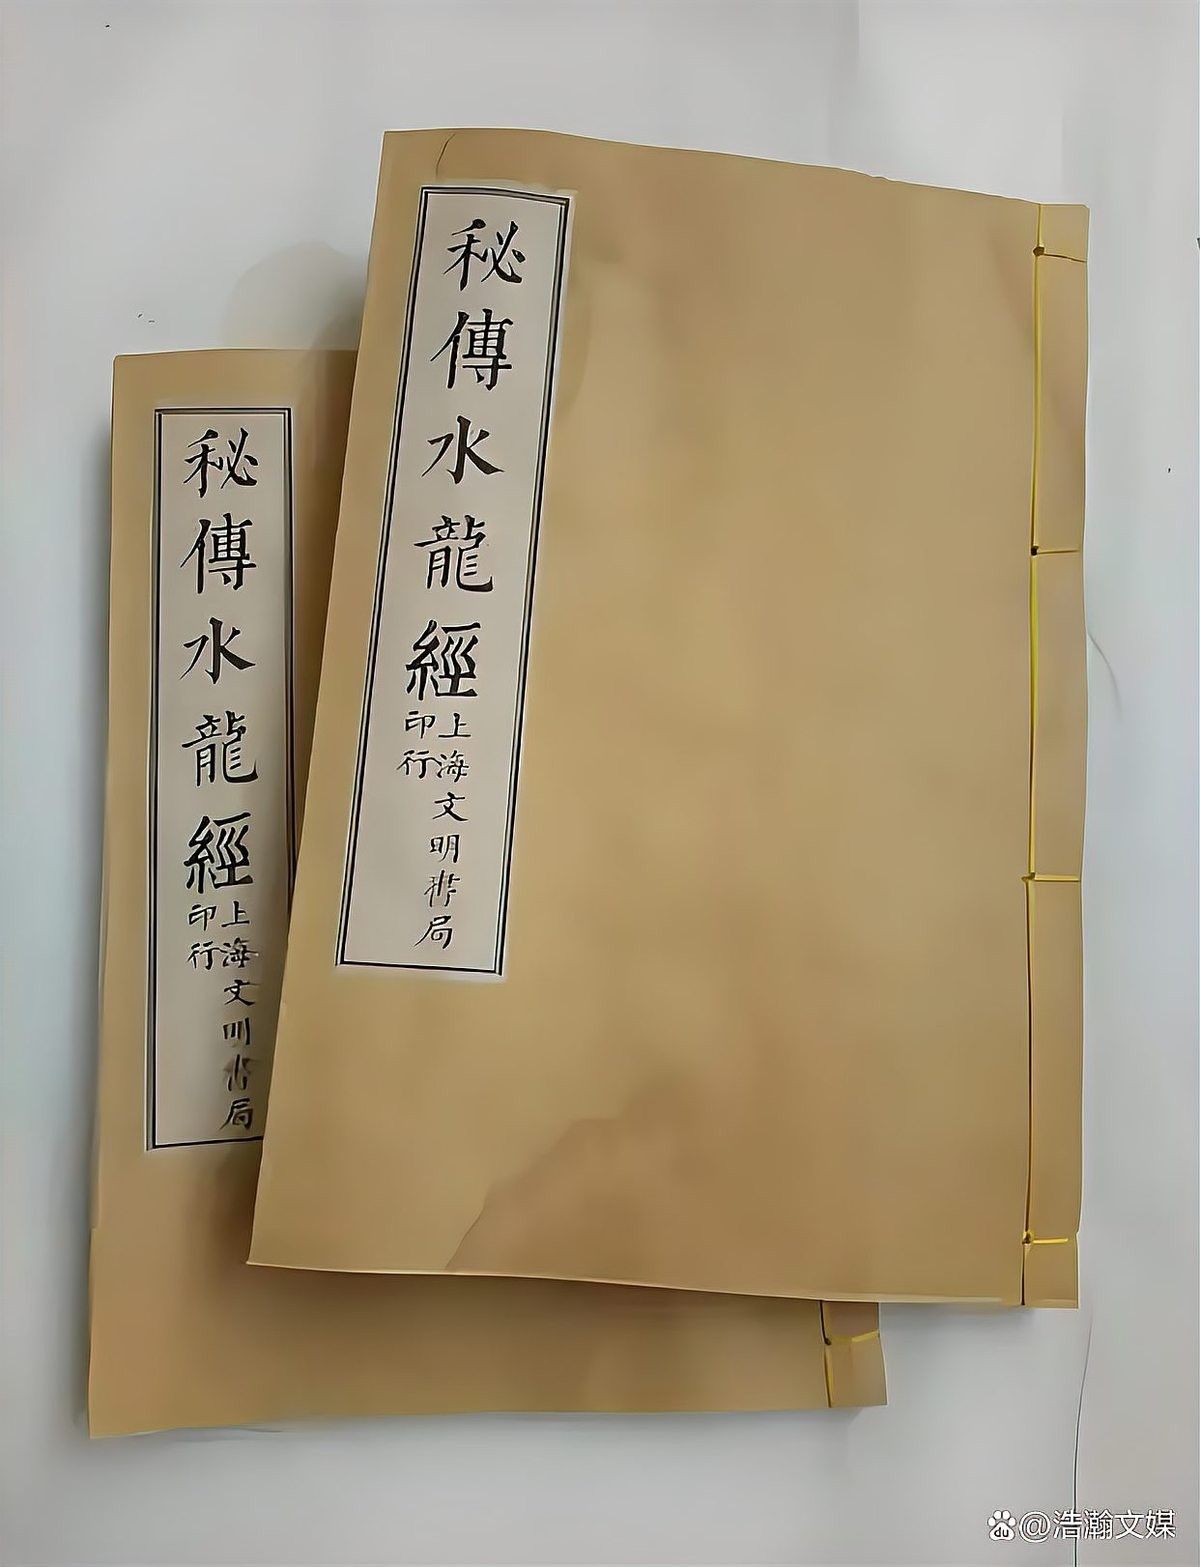 秘傳水龍經
上海文明書局
印行
秘傳水龍經
上海文明書局
印行
@浩瀚文媒